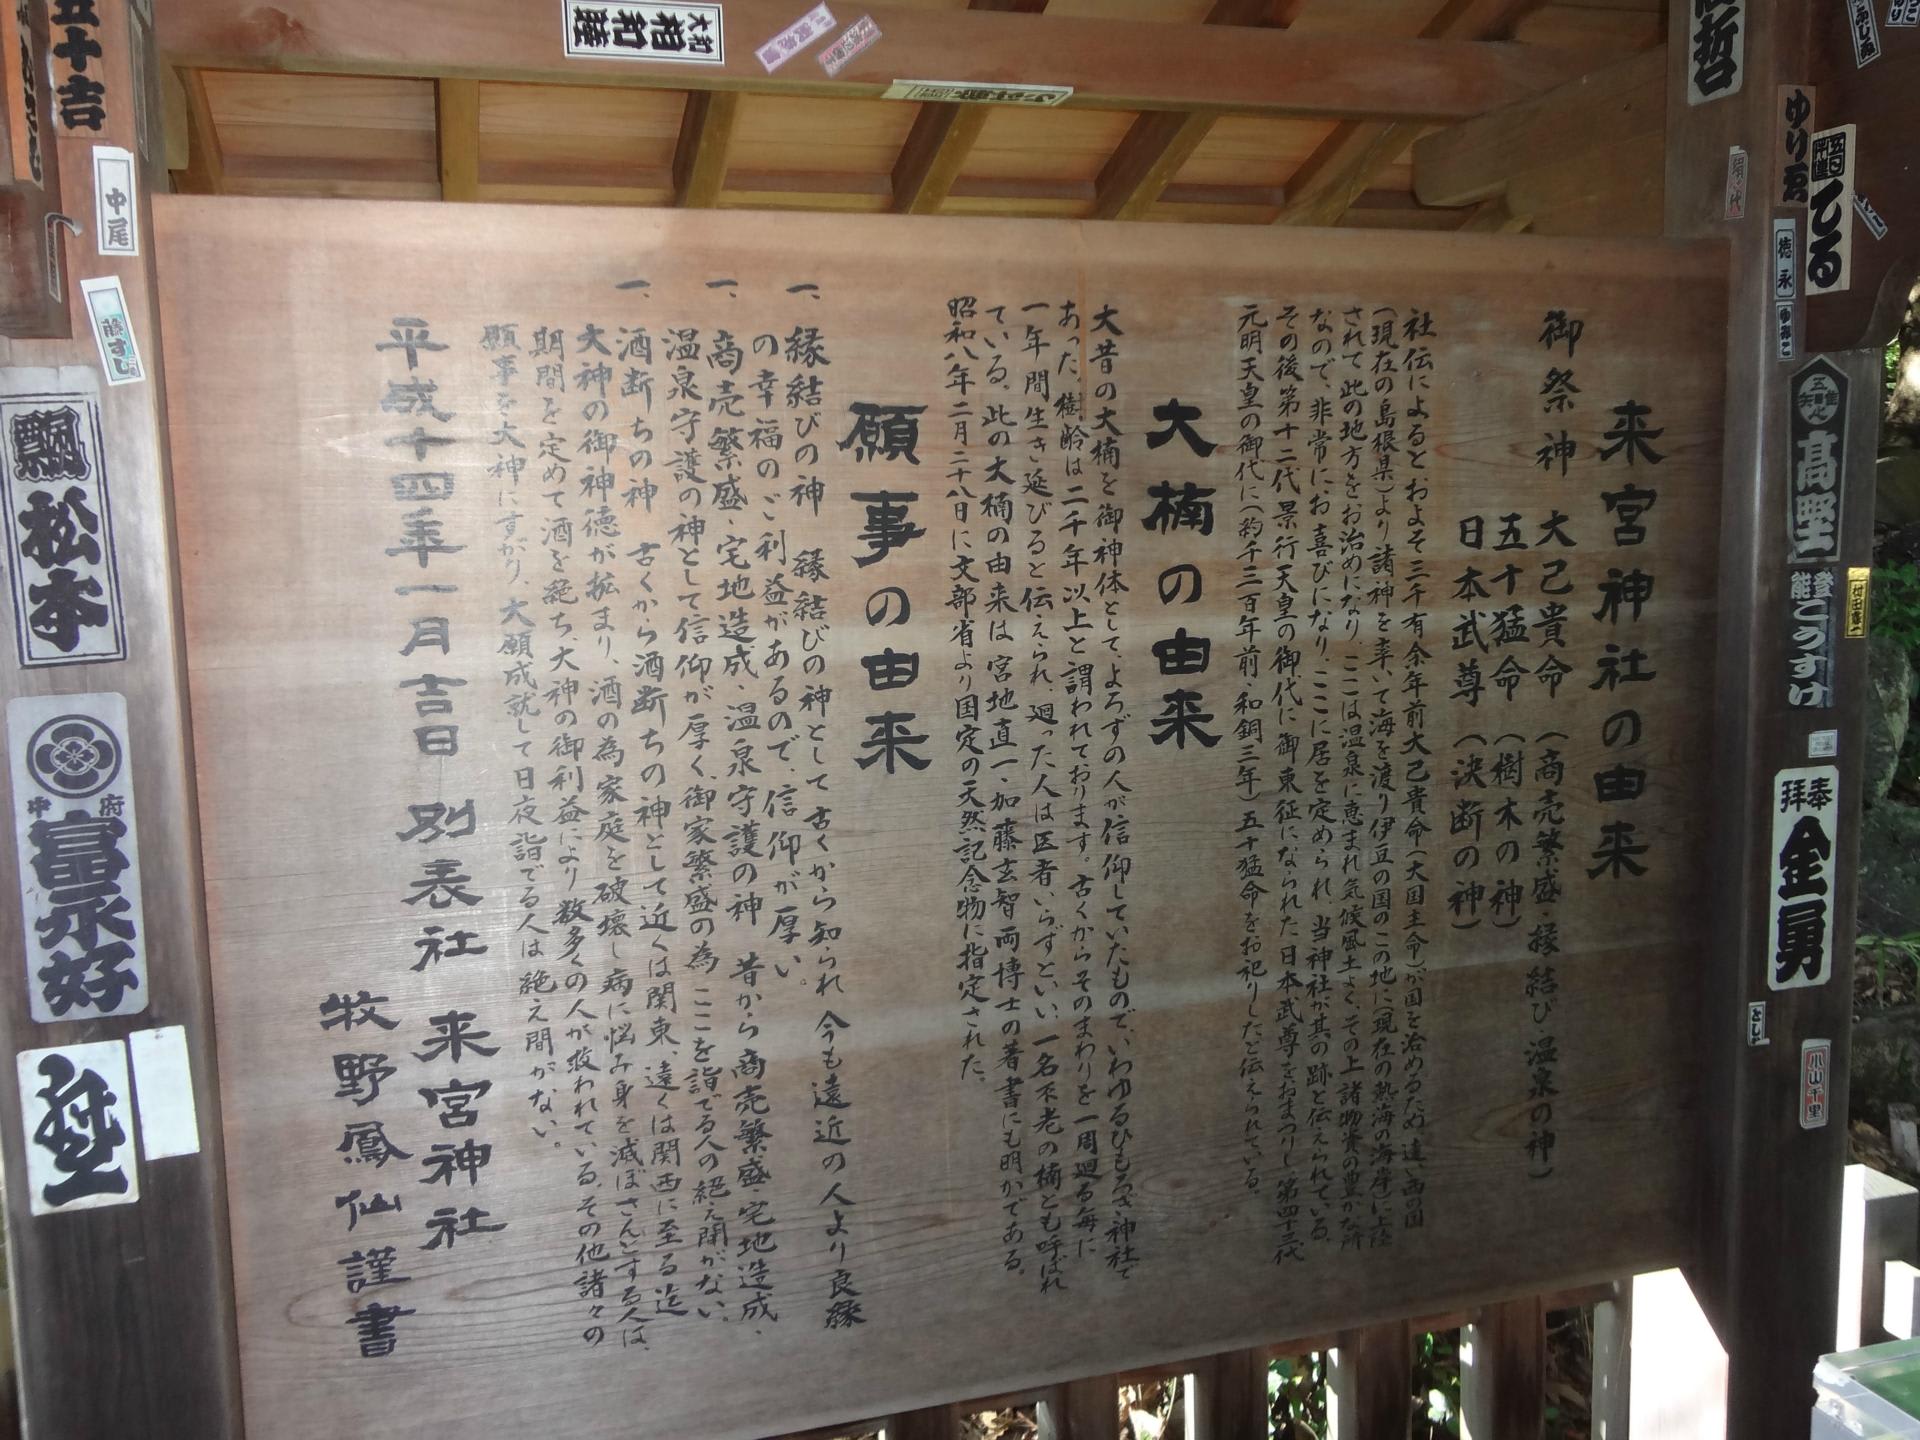 来宮神社の由来
御祭神 大己貴命 (商売繁盛・縁結び・温泉の神)
五十猛命 (樹木の神)
日本武尊 (決断の神)
社伝によるとおよそ三千有余年前大己貴命(大国主命)が国を治めるため遠い西の国
(現在の島根県)より諸神を率いて海を渡り伊豆の国のこの地に(現在の熱海の海岸)に上陸
されて此の地方をお治めになり、ここは温泉に恵まれ気候風土よく、その上諸物資の豊かな所
なので、非常にお喜びになり、ここに居を定められ、当神社が其の跡と伝えられている。
その後第十二代景行天皇の御代に御東征になられた日本武尊をおまつりし、第四十三代
元明天皇の御代に(約千三百年前・和銅三年)五十猛命をお祀りしたと伝えられている。
大楠の由来
大昔の大楠を御神体として、よろずの人が信仰していたもので、いわゆるひもろぎ神社で
あった。樹齢は二千年以上と謂われております。古くからそのまわりを一周廻る毎に
一年間生き延びると伝えられ、廻った人は医者いらずといい、一名不老の楠とも呼ばれ
ている。此の大楠の由来は宮地直一、加藤玄智両博士の著書にも明かである。
昭和八年二月二十八日に文部省より国定の天然記念物に指定された。
願事の由来
一、縁結びの神 縁結びの神として古くから知られ 今も遠近の人より良縁
の幸福のご利益があるので、信仰が厚い。
一、商売繁盛・宅地造成・温泉守護の神 昔から商売繁盛・宅地造成・
温泉守護の神として信仰が厚く、御家繁盛の為 ここを詣でる人の絶え間がない。
一、酒断ちの神 古くから酒断ちの神として近くは関東、遠くは関西に至る迄
大神の御神徳が拡まり、酒の為家庭を破壊し病に悩み身を滅ぼさんとする人は、
期間を定めて酒を絶ち、大神の御利益により数多くの人が救われている。その他諸々の
願事を大神にすがり、大願成就して日夜詣でる人は絶え間がない。
平成十四年一月吉日 別表社 来宮神社
牧野鳳仙謹書
五十吉
中尾
藤すし
松本
府中
富永好
大和
相知睦
哲
ゆり
てる
徳永
ゆみこ
高野
能登
こうすけ
奉拝
金勇
とし
小山千里